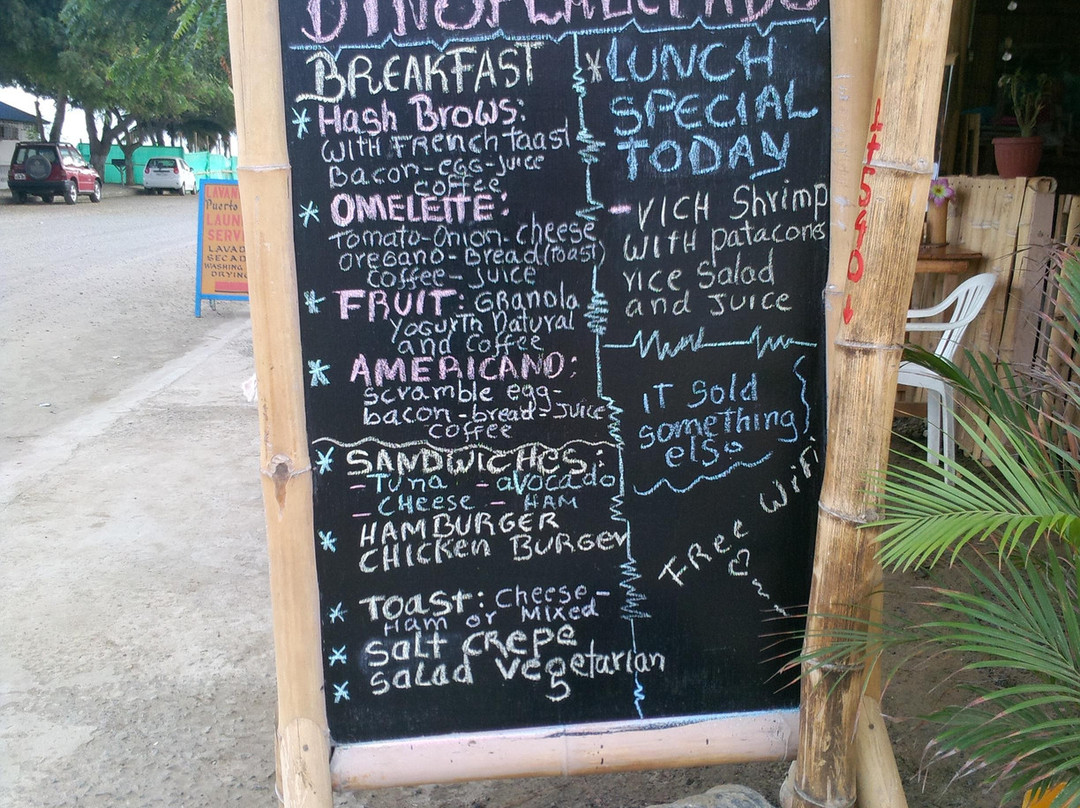 BREAKFAST
* Hash Brows:
with French toast
bacon-egg-juice
coffee
* OMELETTE:
Tomato-Onion-cheese
oregano-Bread(toast)
coffee-juice
* FRUIT: Granola
Yogurth Natural
and coffee
* AMERICANO:
scramble egg-
bacon-bread-juice
coffee
* SANDWICHES:
-Tuna -avocado
-CHeese - HAM
* HAMBURGER
CHICKEN BURGER
* TOAST: Cheese-
Ham or Mixed
* Salt crepe
* Salad vegetarian
*LUNCH
SPECIAL
TODAY
-rich Shrimp
with patacones
rice Salad
and juice
IT Sold
something
else
Free WiFi
LAVAN
Puerto
LAUN
SERV
LAVAD
SECAD
WASHING
DRYING